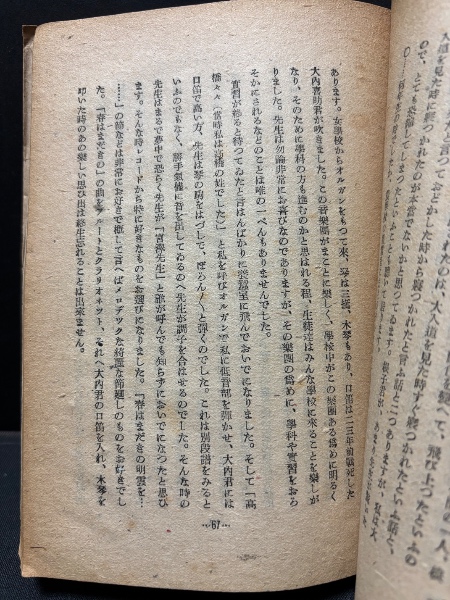 あります。女學校からオルガンをもつて來、琴は三挺、木琴もあり、口笛は二三年前戰死した
大内喜助君が吹きました。この音樂團がまことに樂しく、學校中がこの樂團ある爲めに明るく
なり、そのために學科の方も進むのかと思はれる程、生徒達はみんな學校に來ることを樂しが
りました。先生は勿論非常にお喜びなのでありますが、その樂團の爲めに、學科や實習をおろ
そかにされるなどのことは唯の一ぺんもありませんでした。
實習が終ると待つてゐたと言はんばかりに樂器室に飛んでおいでになりました。そして「高
橋々々（當時私は高橋の姓でした）」と私を呼びオルガンで私に低音部を彈かせ、大内君には
口笛で高い方、先生は琴の肩をはづして、ぽろん〳〵と彈くのでした。これは別段譜をみると
いふのでもなく、勝手氣儘に音を出してゐるのへ先生が調子を合はせるのでした。そんな時の
先生はまるで夢中で恐らく先生が「宮澤先生」と誰が呼んでも知らずにおいでになつたと思ひ
ます。そんな時レコードから特に好きなものをお選びになりました。「春はまだきの明雲を…
……」の節などは非常にお好きで概して言へばメロデツクな綺麗な節廻しのものをお好きでし
た。「春はまだきの」の曲をフルートとクラリオネット、それへ大内君の口笛を入れ、木琴を
叩いた時のあの樂しい思ひ出は終生忘れることは出來ません。
—67—